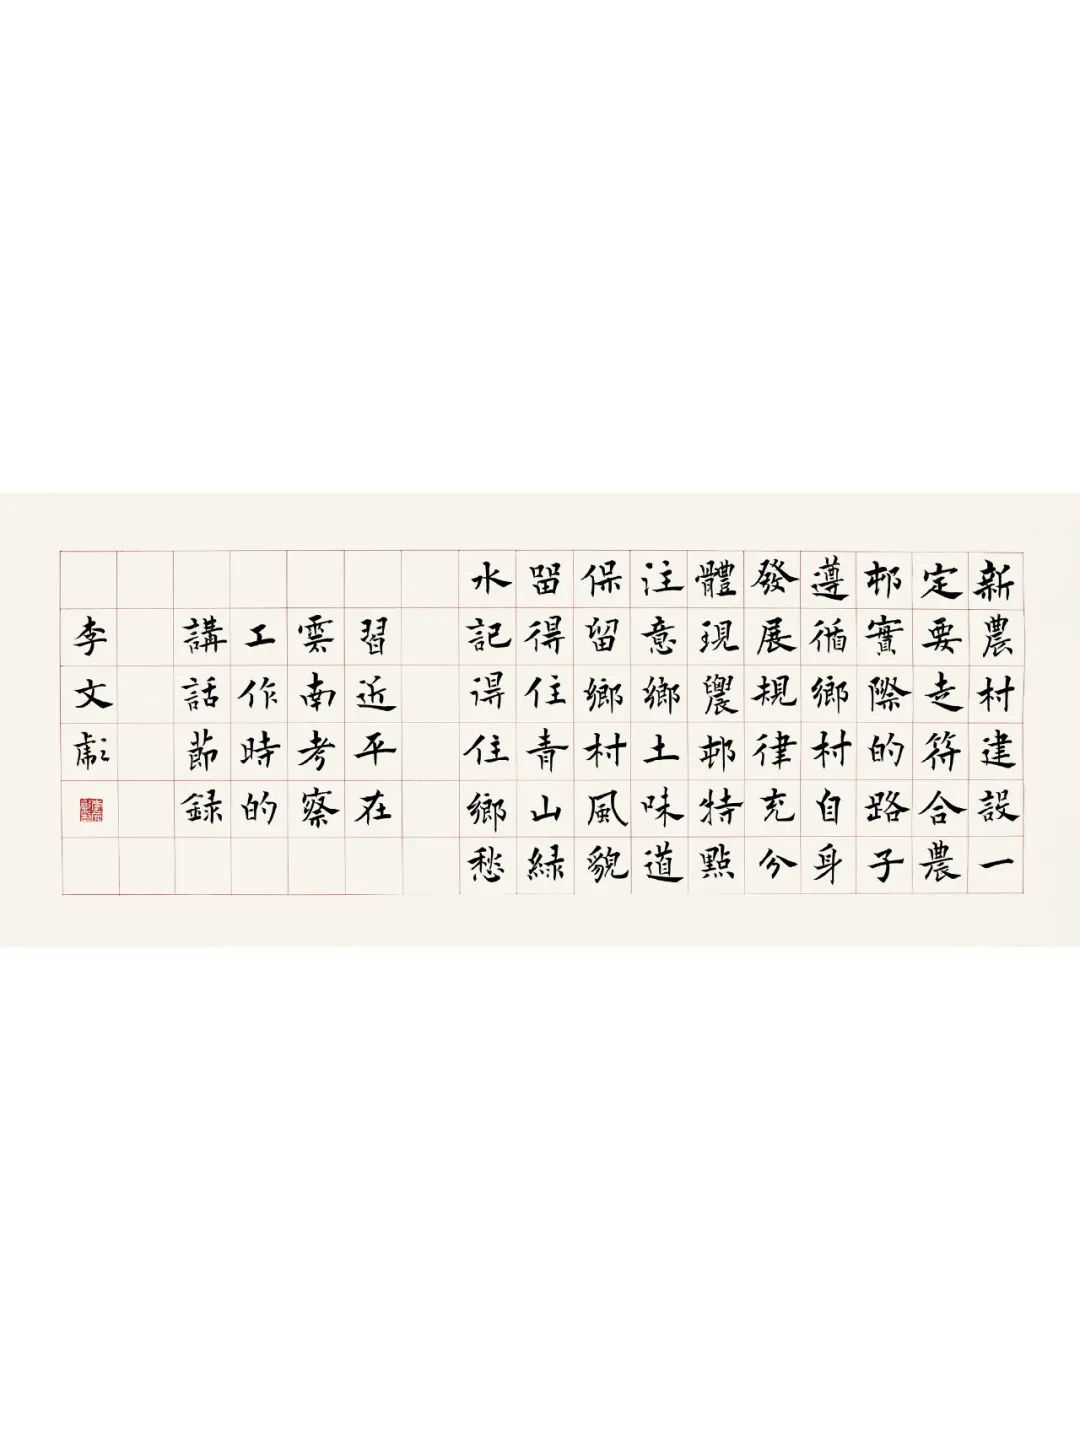 新農村建設一
定要走符合農
邨實際的路子
遵循鄉村自身
發展規律充分
體現農邨特點
注意鄉土味道
保留鄉村風貌
留得住青山緑
水記得住鄉愁
習近平在
雲南考察
工作時的
講話節録
李文